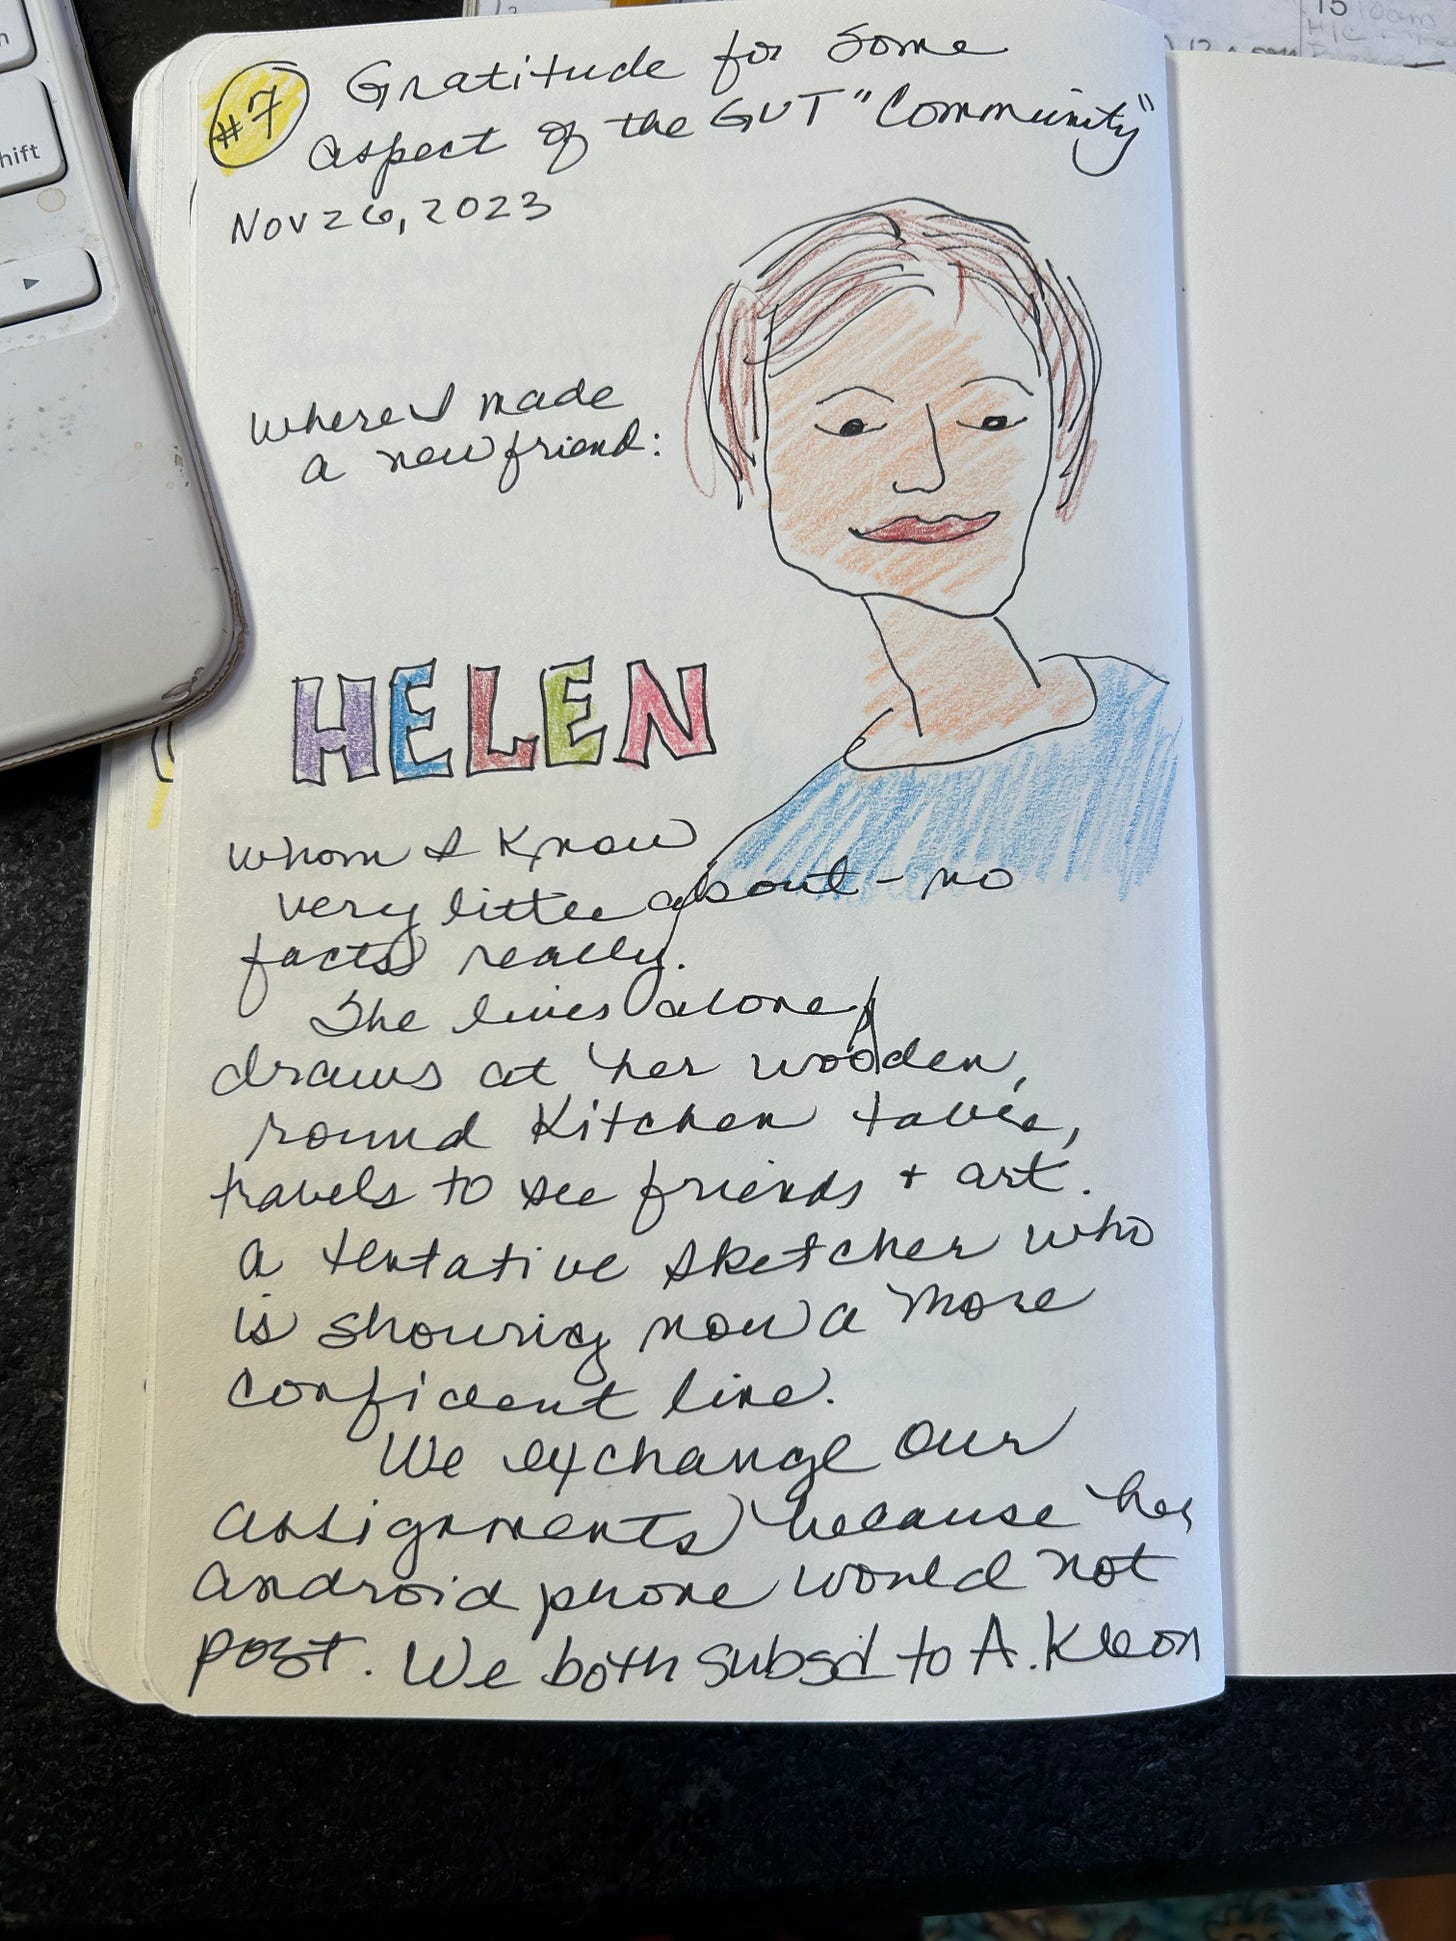 #7 Gratitude for Some
aspect of the GUT "Community"
Nov 26, 2023
where I made
a new friend:
HELEN
whom I know
very little about - no
facts really.
She lives alone,
draws at her wooden,
round kitchen table,
travels to see friends + art.
A tentative sketcher who
is showing now a more
confident line.
We exchange our
assignments because her
android phone would not
post. We both subsd to A. Kleon
shift
15 10am